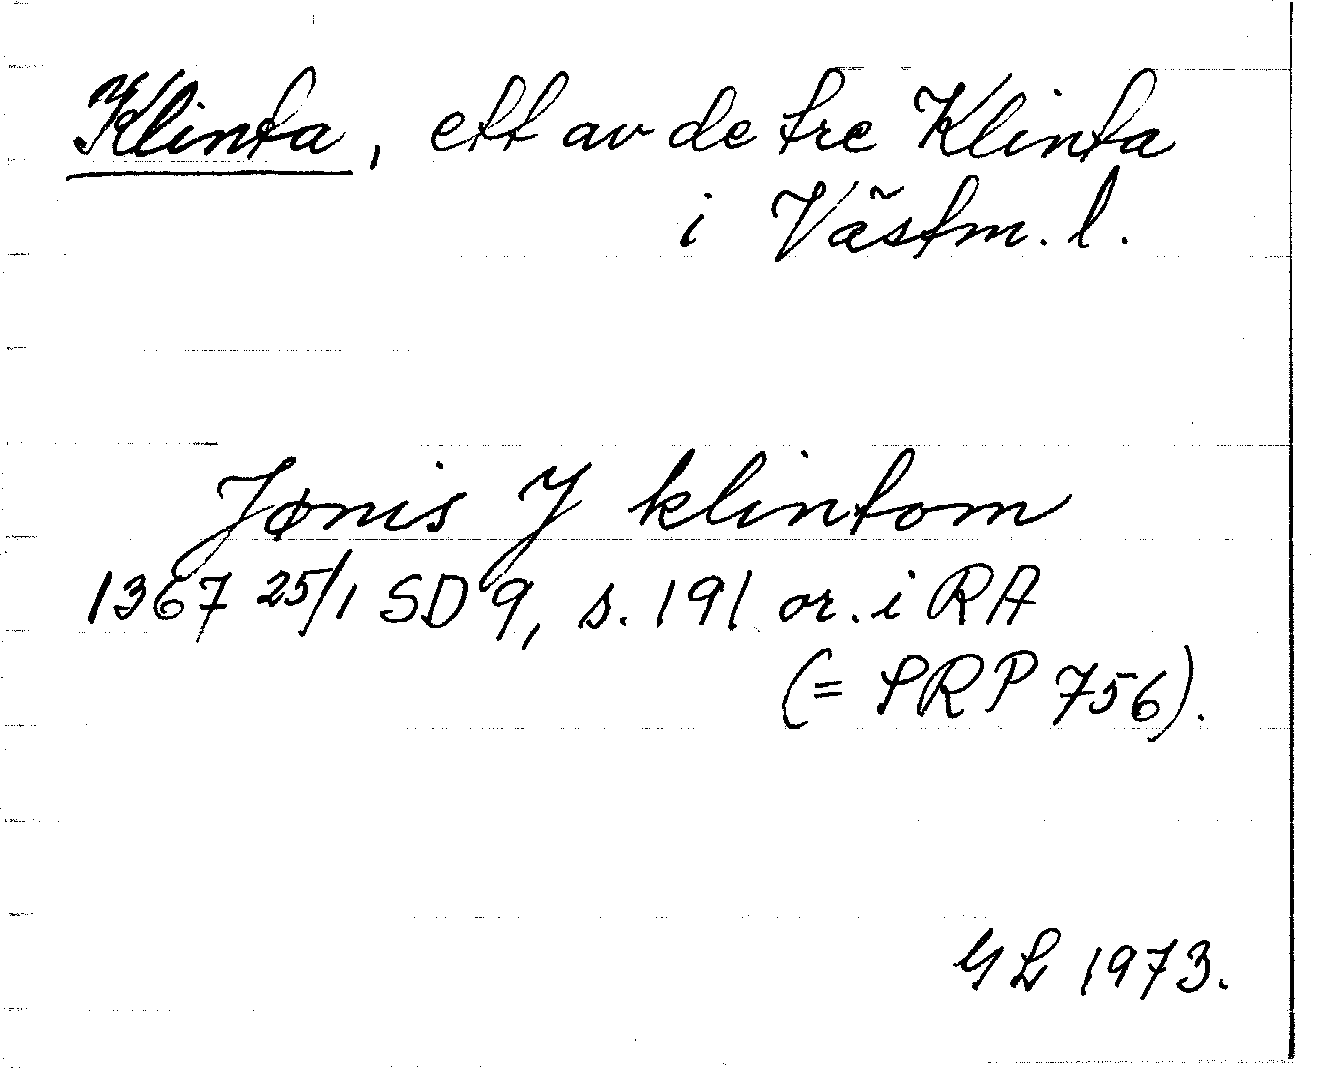 Klinta, ett av de tre Klinta
i Västm. l.
Jønis J klintom
1367 25/1 SD 9, s. 191 or. i RA
(= SRP 756).
GL 1973.